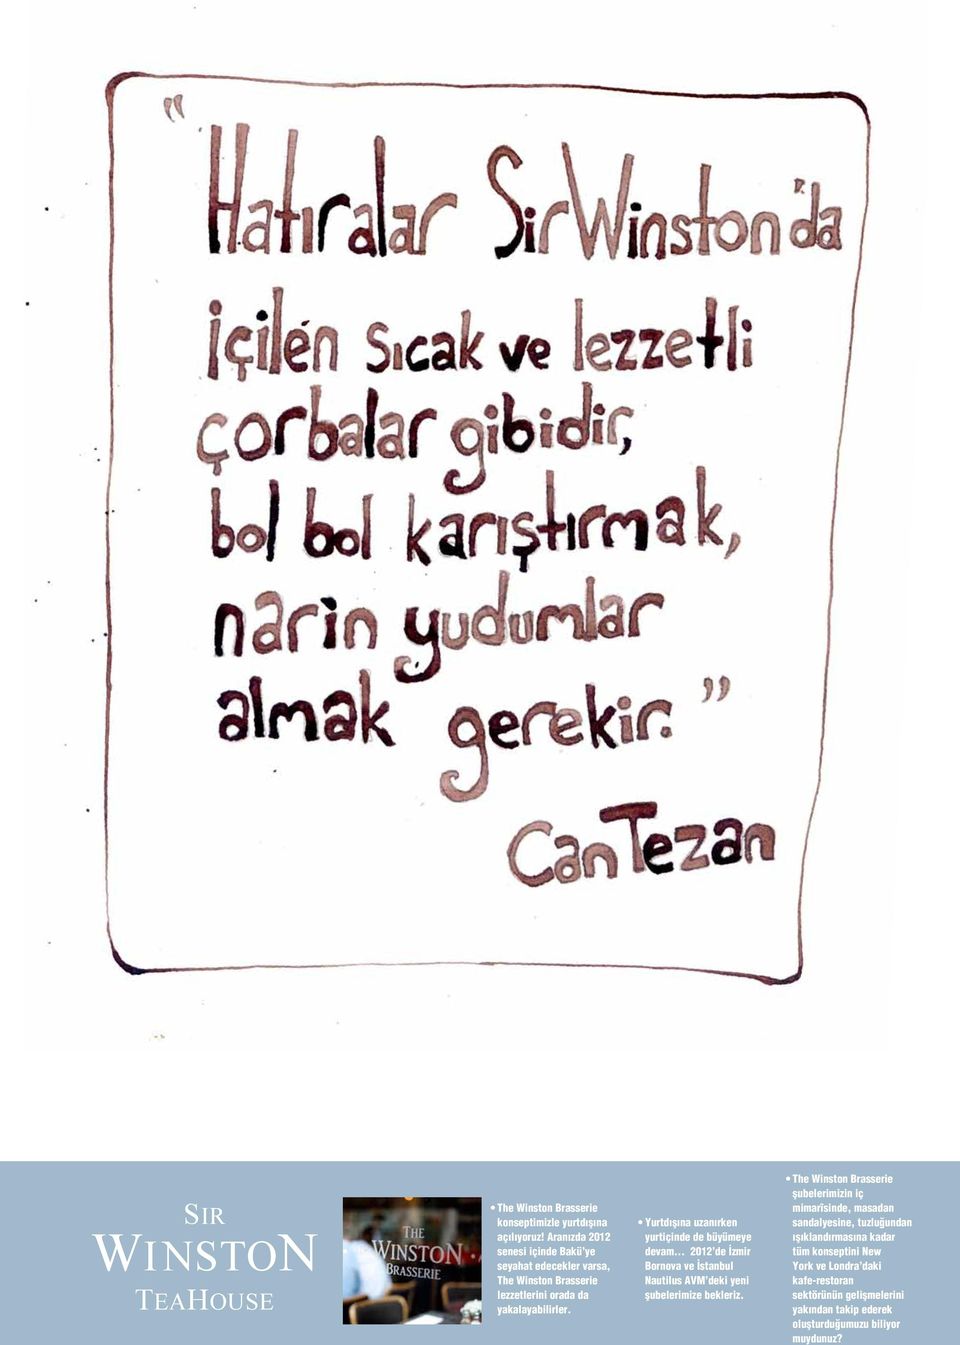 "Hatıralar Sir Winston'da
içilen sıcak ve lezzetli
çorbalar gibidir,
bol bol karıştırmak,
narin yudumlar
almak gerekir."
Can Tezan
SIR
WINSTON
TEAHOUSE
THE
WINSTON
BRASSERIE
• The Winston Brasserie
konseptimizle yurtdışına
açılıyoruz! Aranızda 2012
senesi içinde Bakü'ye
seyahat edecekler varsa,
The Winston Brasserie
lezzetlerini orada da
yakalayabilirler.
• Yurtdışına uzanırken
yurtiçinde de büyümeye
devam... 2012'de İzmir
Bornova ve İstanbul
Nautilus AVM'deki yeni
şubelerimize bekleriz.
• The Winston Brasserie
şubelerimizin iç
mimarîsinde, masadan
sandalyesine, tuzluğundan
ışıklandırmasına kadar
tüm konseptini New
York ve Londra'daki
kafe-restoran
sektörünün gelişmelerini
yakından takip ederek
oluşturduğumuzu biliyor
muydunuz?